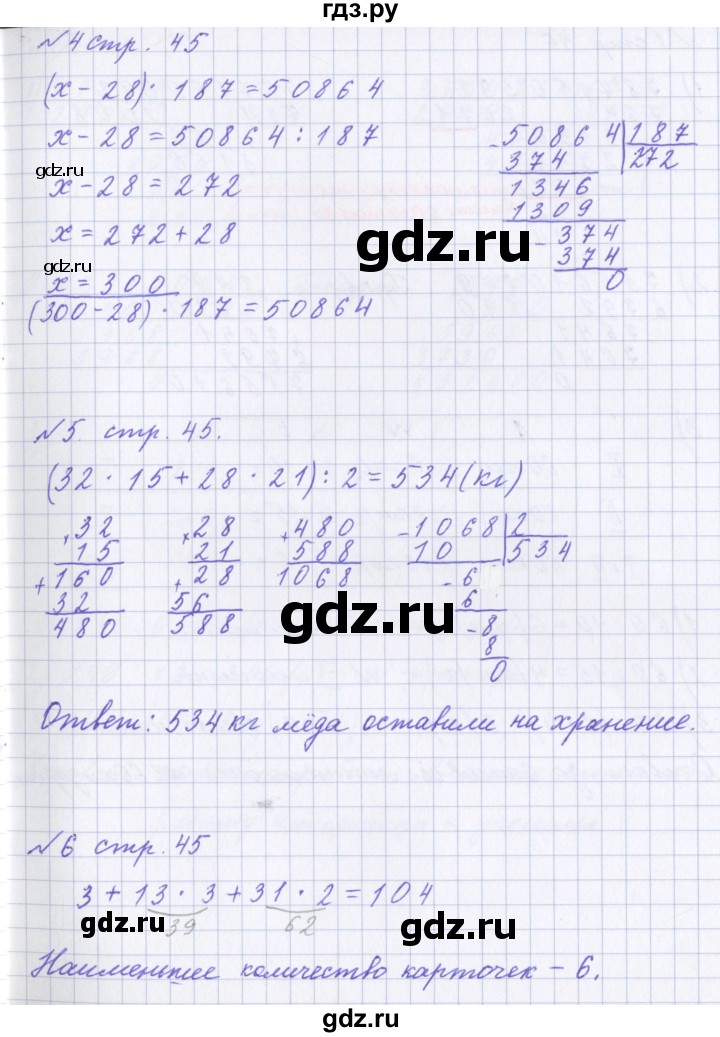 гдз.ру
№4 стр. 45
(x - 28) · 187 = 50864
x - 28 = 50864 : 187
x - 28 = 272
x = 272 + 28
x = 300
(300 - 28) · 187 = 50864
- 50864 | 187
374 272
1346
1309
- 374
374
0
gdz.ru
gdz.ru
№5 стр. 45.
(32 · 15 + 28 · 21) : 2 = 534 (кг)
× 32
15
+ 160
32
480
× 28
21
+ 28
56
588
+ 480
588
1068
- 1068 | 2
10 534
- 6
6
- 8
8
0
gdz.ru
Ответ: 534 кг мёда оставили на хранение.
№6 стр. 45
3 + 13 · 3 + 31 · 2 = 104
39 62
gdz.ru
gdz.ru
Наименьшее количество карточек - 6.
gdz.ru